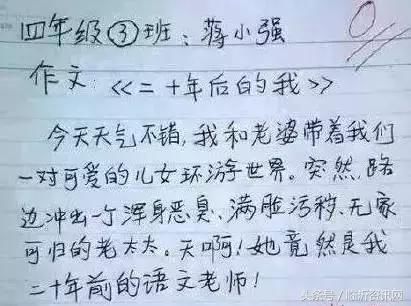 四年级③班：蒋小强
作文：《二十年后的我》
今天天气不错，我和老婆带着我们
一对可爱的儿女环游世界。突然，路
边冲出一个浑身恶臭、满脸污秽、无家
可归的老太太。天啊！她竟然是我
二十年前的语文老师！
头条号/临沂资讯网